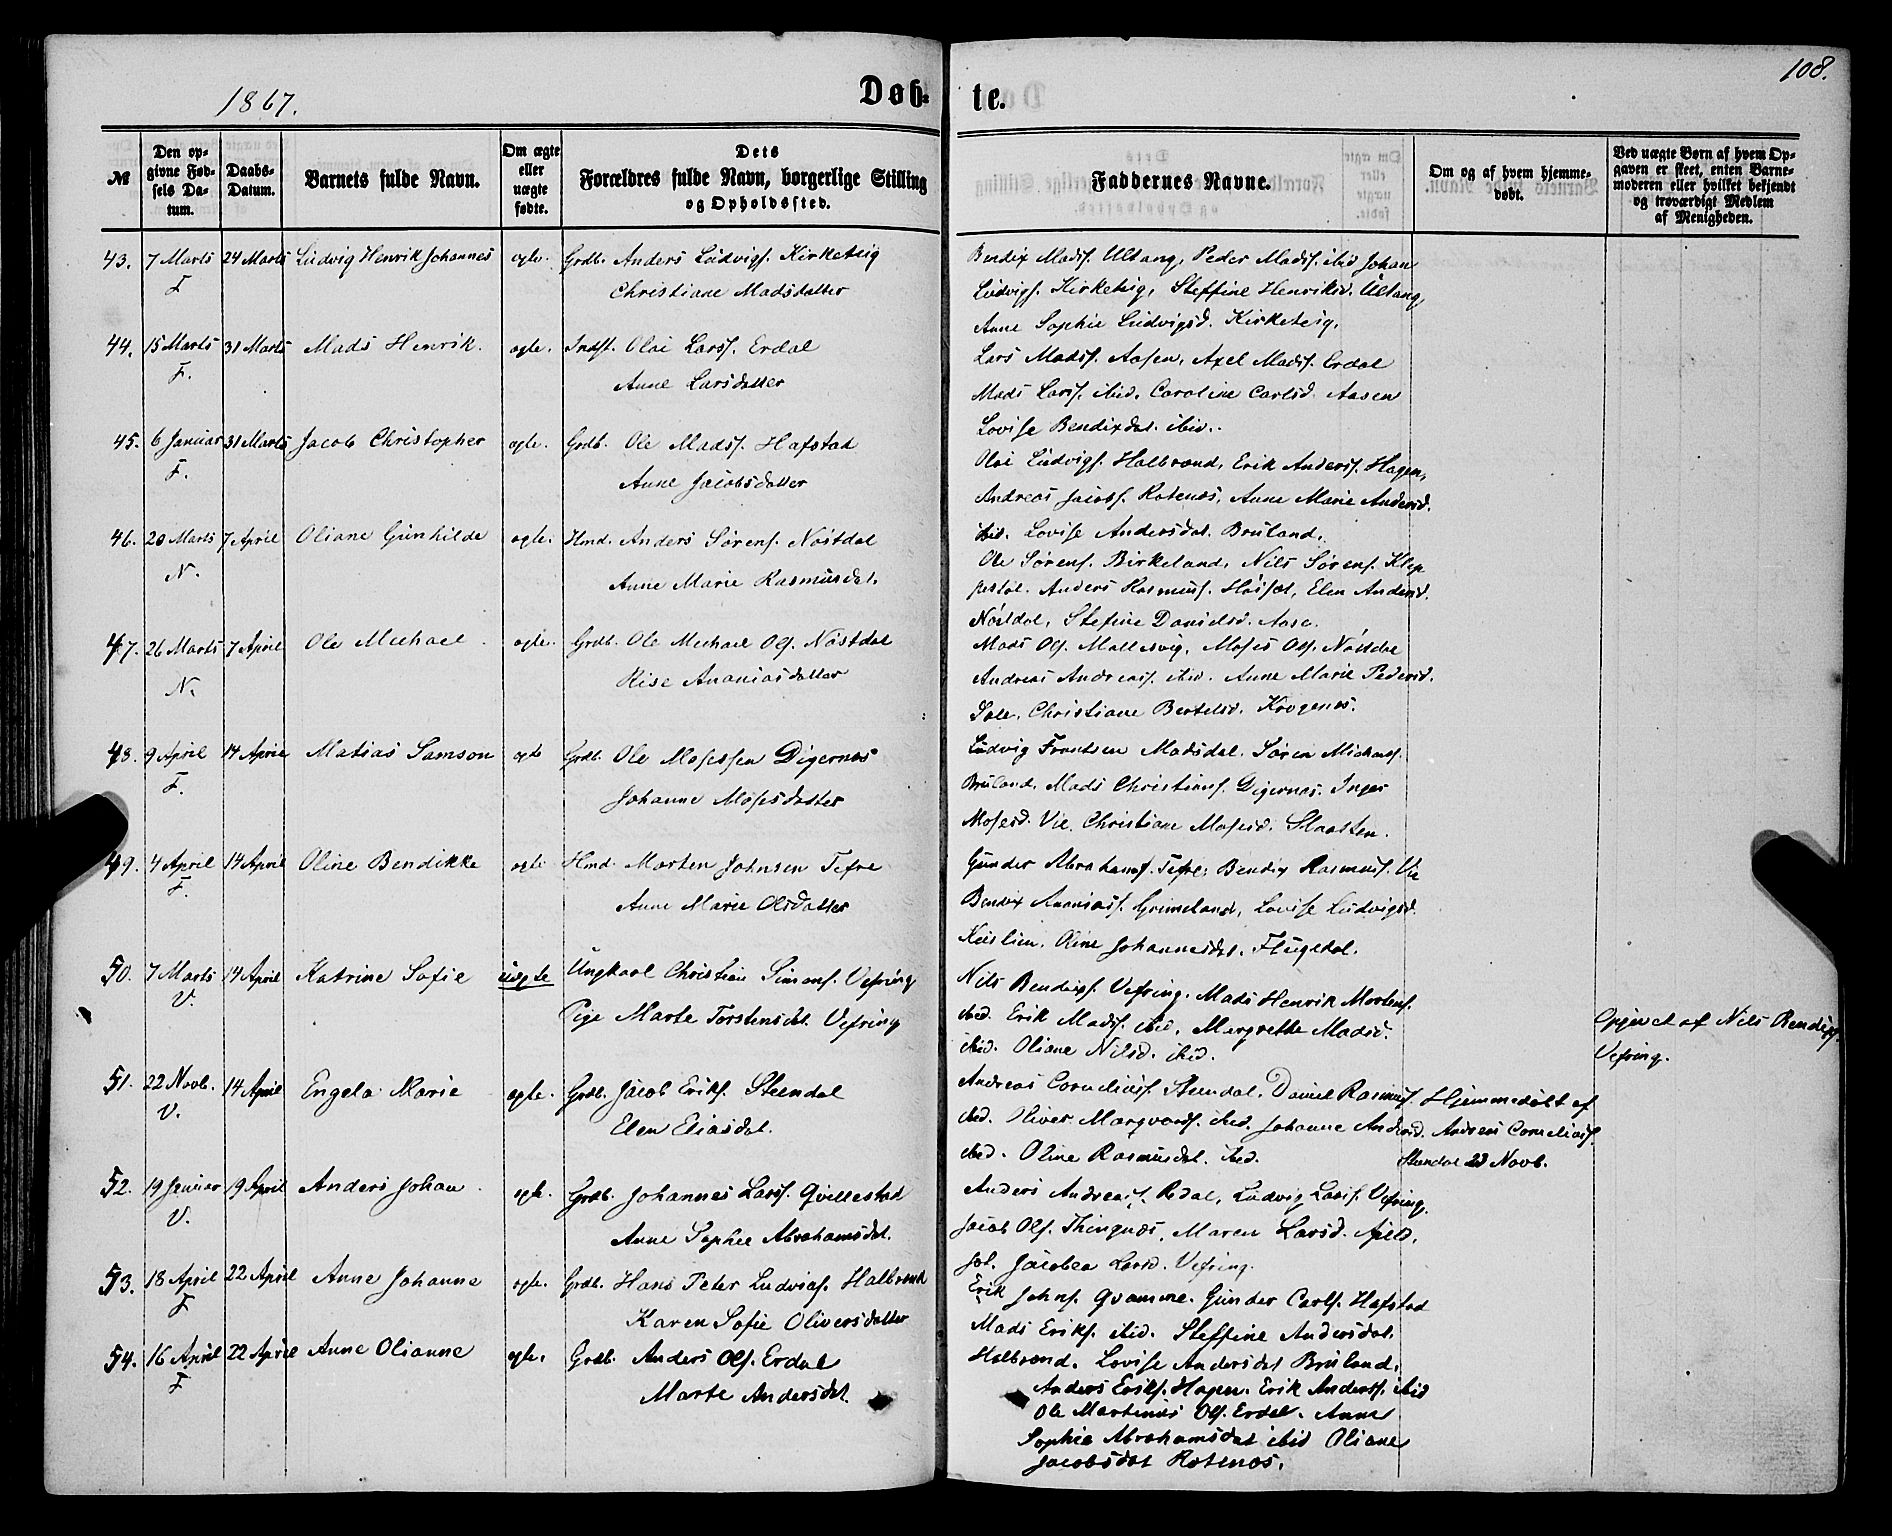 108.
1867.
Døb- te.
№ | Den op-givne Fød-sels Da-tum. | Daabs-Datum. | Barnets fulde Navn. | Om ægte eller uægte fødte. | Dets Forældres fulde Navn, borgerlige Stilling og Opholdssted. | Faddernes Navne. | Om og af hvem hjemme-døbt. | Ved uægte Børn af hvem Op-gaven er skeet, enten Barne-moderen eller hvilket bekjendt og troværdigt Medlem af Menigheden.
43. 7 Marts 24 Marts Ludvig Henrik Johannes ægte. Grdb. Anders Ludvigs. Kirketeig
F Christiane Madsdatter
Bendix Mads. Ullang, Peder Mads. ibid Johan
Ludvigs. Kirketeig, Steffine Henriksd. Ullang,
Anne Sophie Ludvigsd. Kirketeig.
44. 15 Marts 31 Marts Mads Henrik. ægte. Indst. Olai Larss. Erdal
F. Anne Larsdatter
Lars Mads. Aasen, Axel Mads. Erdal
Mads Larss. ibid. Caroline Carlsd. Aasen
Lovise Bendixdat. ibid.
45. 6 Januar 31 Marts Jacob Christopher ægte. Grdb. Ole Mads. Hafstad
F. Anne Jacobsdatter
Olai Ludvigs. Halbrend, Erik Anderss. Hagen,
Andreas Jacobs. Rotenæs, Anne Marie Andersd.
ibid. Lovise Andersdat. Bruland.
46. 20 Marts 7 April Oliane Gunhilde ægte. Hmd. Anders Sørens. Nøstdal
N. Anne Marie Rasmusdat.
Ole Sørens. Birkeland, Nils Sørens. Klep
pestøl. Anders Rasmuss. Høisæt, Elen Andersd.
Nøstdal, Stefine Danielsd. Aase.
47. 26 Marts 7 April Ole Michael ægte. Grdb. Ole Michael Ols. Nøstdal
N. Rise Ananiasdatter
Mads Ols. Mallesvig, Moses Ols. Nøstdal
Andreas Andreass. ibid. Anne Marie Pedersd.
Sole, Christiane Bertelsd. Krogenæs.
48. 9 April 14 April Matias Samson ægte Grdb. Ole Mosessen Digernæs
F. Johanne Mosesdatter
Ludvig Frantsen Madsdal. Søren Michaels.
Bruland. Mads Christians. Digernæs. Inger
Mosesd. Vie. Christiane Mosesd. Slaatten.
49. 4 April 14 April Oline Bendikke ægte Hmd. Morten Johnsen Tefre
F. Anne Marie Olsdatter
Gunder Abrahams. Tefre, Bendix Rasmuss. Vie
Bendix Ananiass. Grimeland, Lovise Ludvigsd.
Oline Johannesdat. Flugedal.
50. 7 Marts 14 April Katrine Sofie uægte Ungkarl Christian Simons. Vefring
V. Pige Marte Torstensdat. Vefring
Nils Bendixs. Vefring. Mads Henrik Mortens.
ibid. Erik Mads. ibid, Margrethe Madsd.
ibid. Oliane Nilsd. ibid.
Opgivet af Nils Bendixs.
Vefring.
51. 22 Novb. 14 April Engela Marie ægte. Grdb. Jacob Eriks. Steendal
V. Elen Eliasdat.
Andreas Corneliuss. Steendal. Daniel Rasmuss.
ibid. Oliver Margvards. ibid. Johanne Andersd.
ibid. Oline Rasmusdat. ibid.
Hjemmedøbt af
Andreas Corneliuss.
Stendal 23 Novb.
52. 19 Januar 19 April Anders Johan ægte. Grdb. Johannes Larss. Qvillestad
V. Anne Sophie Abrahamsdat.
Anders Andreass. Redal, Ludvig Larss. Vefring.
Jacob Ols. Thingnæs, Maren Larsd.
Jacobea Larsd. Vefring.
53. 18 April 22 April Anne Johanne ægte. Grdb. Hans Peter Ludvigs. Halbrend
F Karen Sofie Oliversdatter
Erik Johns. Qvamme. Gunder Carls. Hafstad
Mads Eriks. ibid. Steffine Andersdat.
Halbrend. Lovise Andersdat Bruland.
54. 16 April 22 April Anne Olianne ægte. Grdb. Anders Ols. Erdal
F Marte Andersdat
Anders Eriks. Hagen. Erik Anderss. ibid
Ole Martinus Ols. Erdal. Anne
Sophie Abrahamsdat ibid Oliane
Jacobsdat Rotenæs.